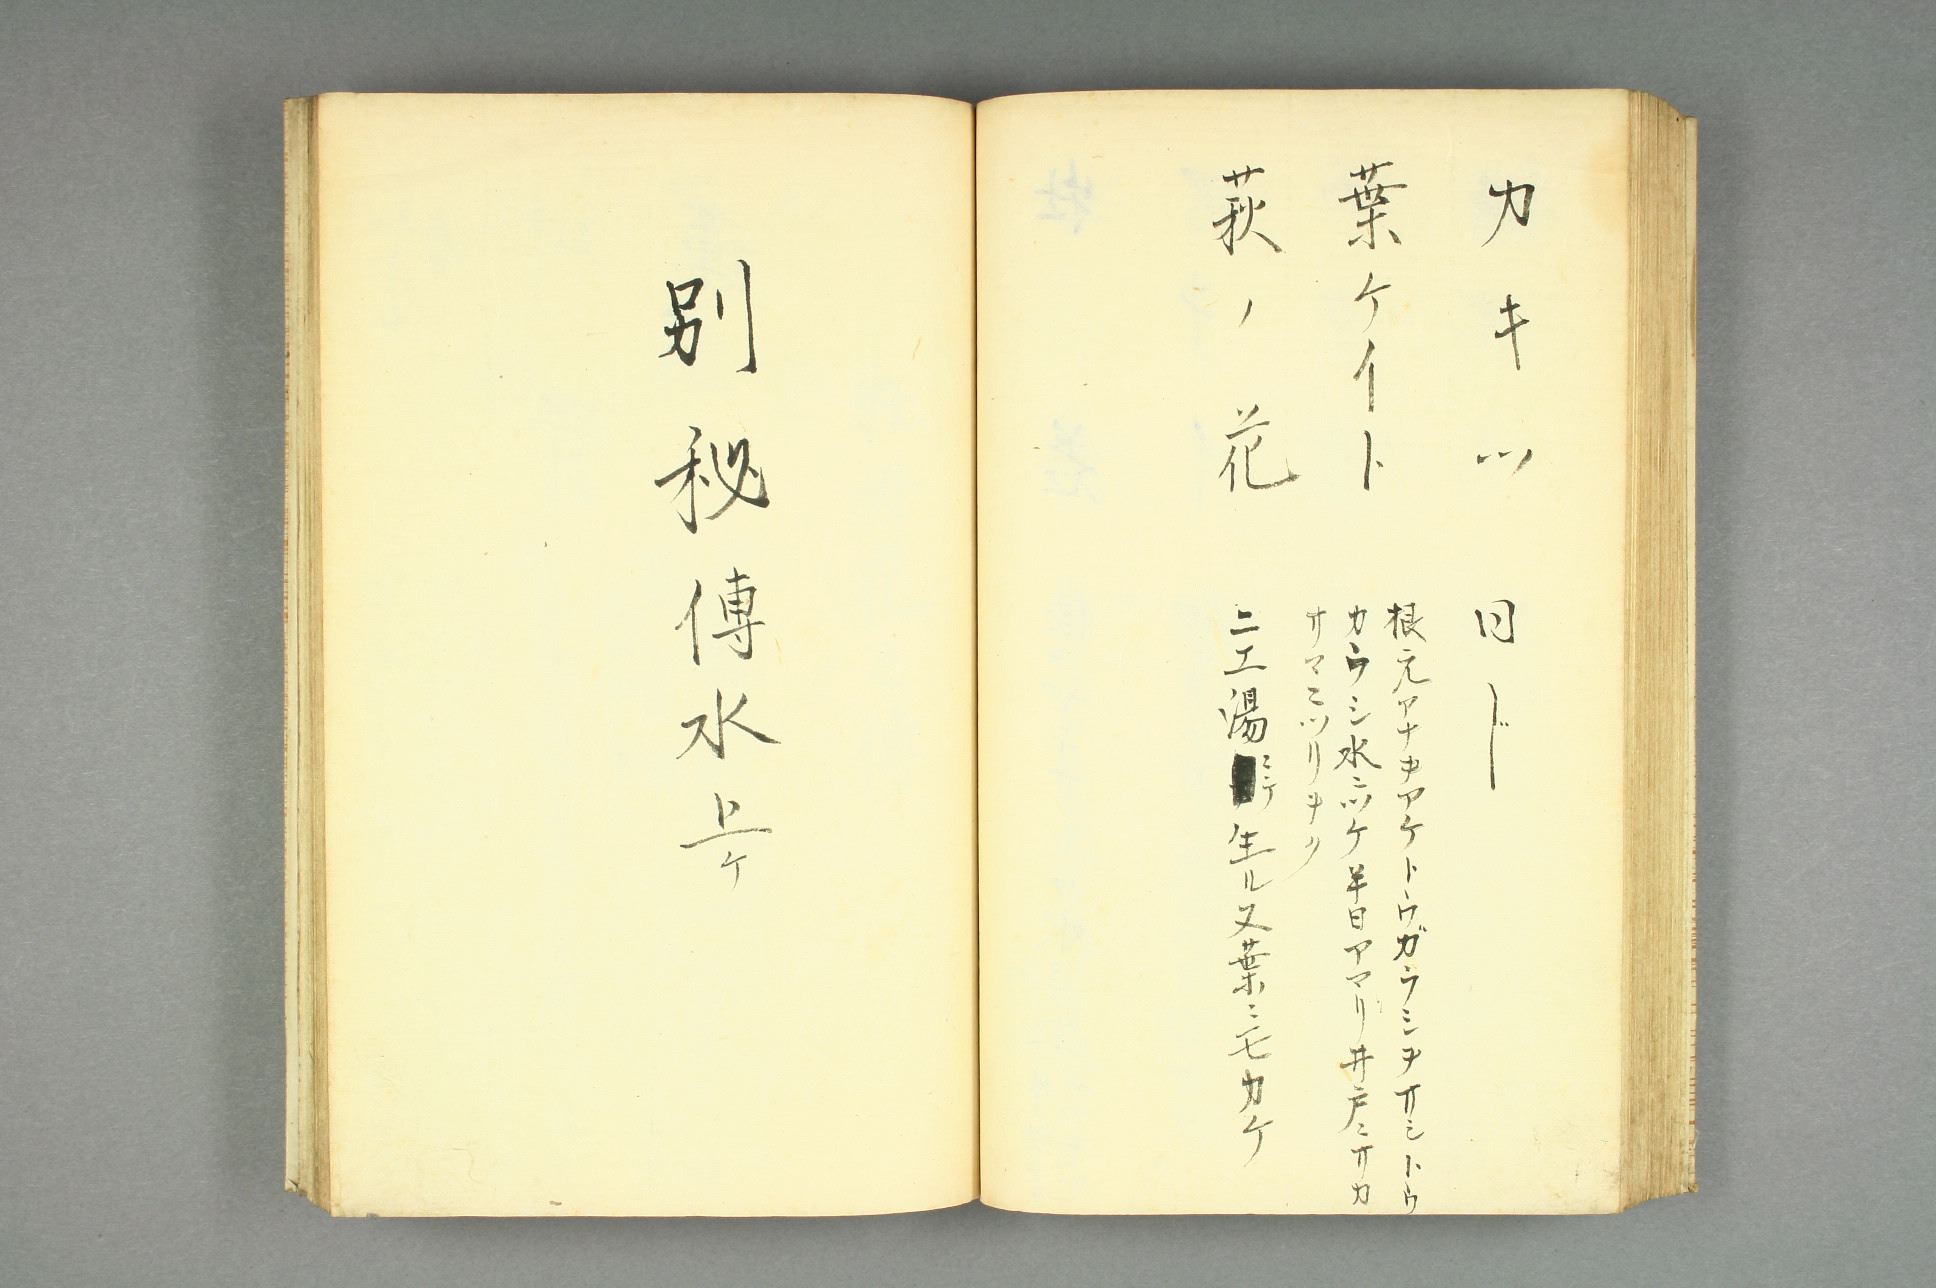 カキツ 同ジ
葉ケイト 根元アナヲアケトウガラシヲサシトウ
カラシ水ニツケ半日アマリ井戸ニサカ
サマニツリヲク
萩ノ花 ニエ湯ニテ生ル又葉ニモカケ
別秘傳水上ケ